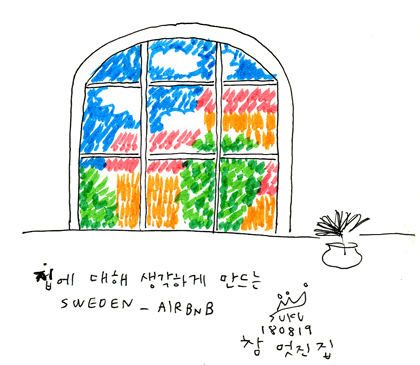 집에 대해 생각하게 만드는
SWEDEN - AIRBNB
SUKU
180819
참 멋진 집